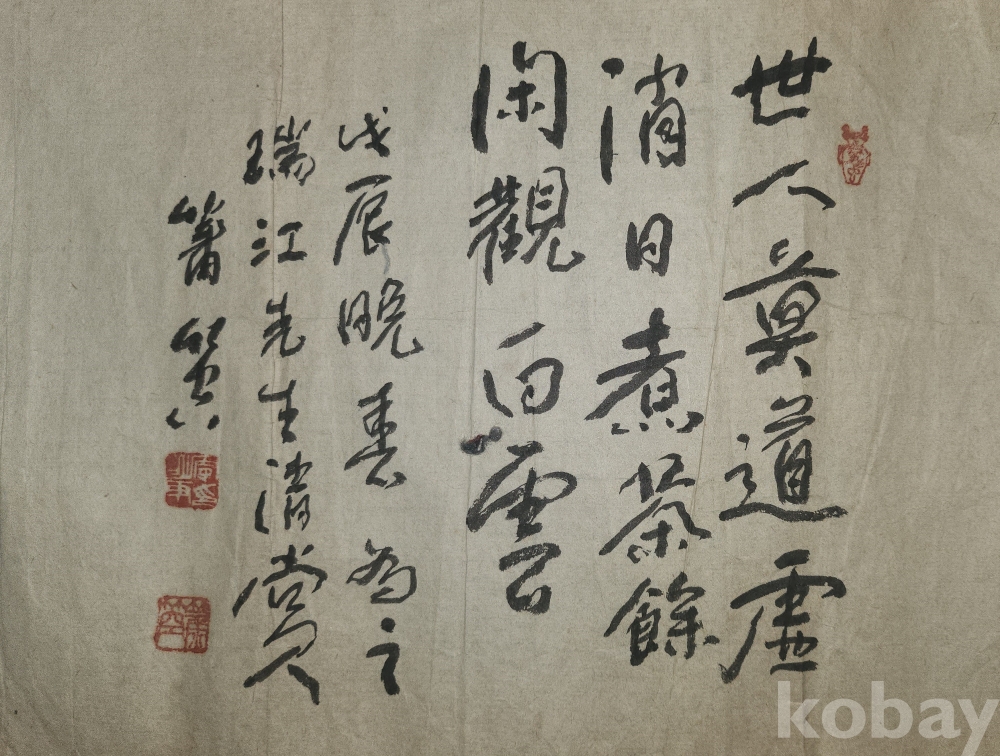 世人莫道虛
消日煮茶餘
閑觀白雲
戊辰晚春為之
瑞江先生清賞
kobay